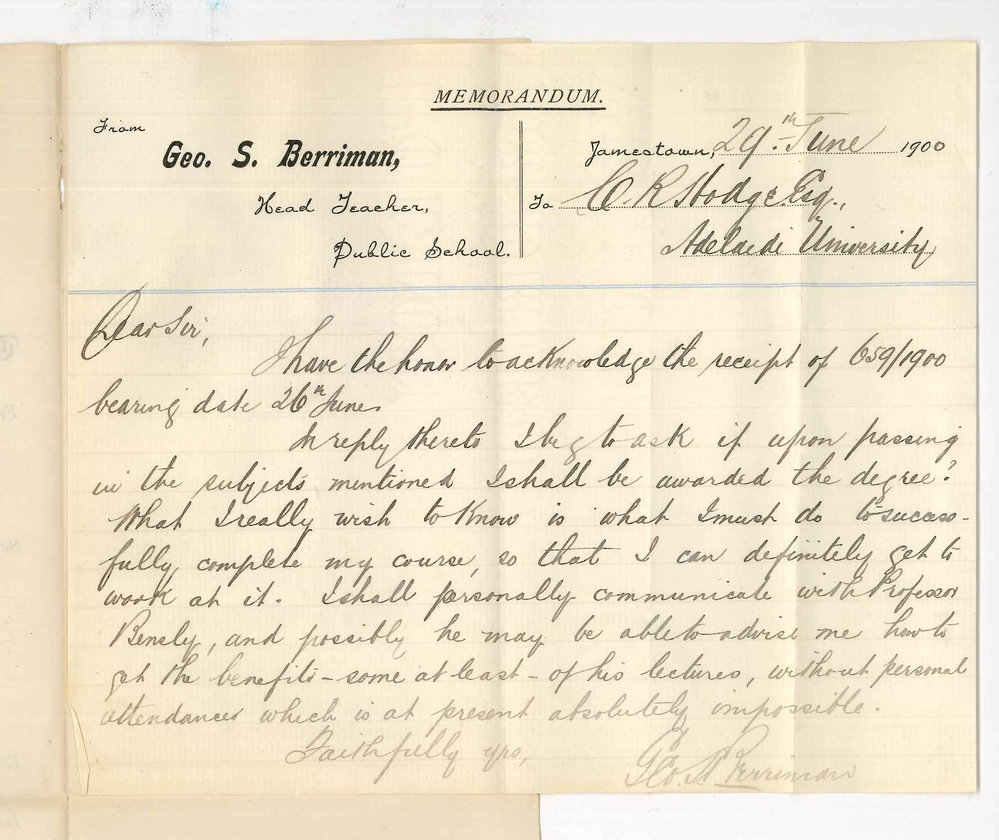 MEMORANDUM.
From
Geo. S. Berriman,
Head Teacher,
Public School.
Jamestown, 29th June 1900
To C. R. Hodge Esq.,
Adelaide University
Dear Sir,
I have the honor to acknowledge the receipt of 659/1900
bearing date 26th June.
In reply thereto I beg to ask if upon passing
in the subjects mentioned I shall be awarded the degree?
What I really wish to know is what I must do to success-
fully complete my course, so that I can definitely get to
work at it. I shall personally communicate with Professor
Bensly, and possibly he may be able to advise me how to
get the benefits - some at least - of his lectures, without personal
attendances which is at present absolutely impossible.
Faithfully yrs,
Geo. S. Berriman